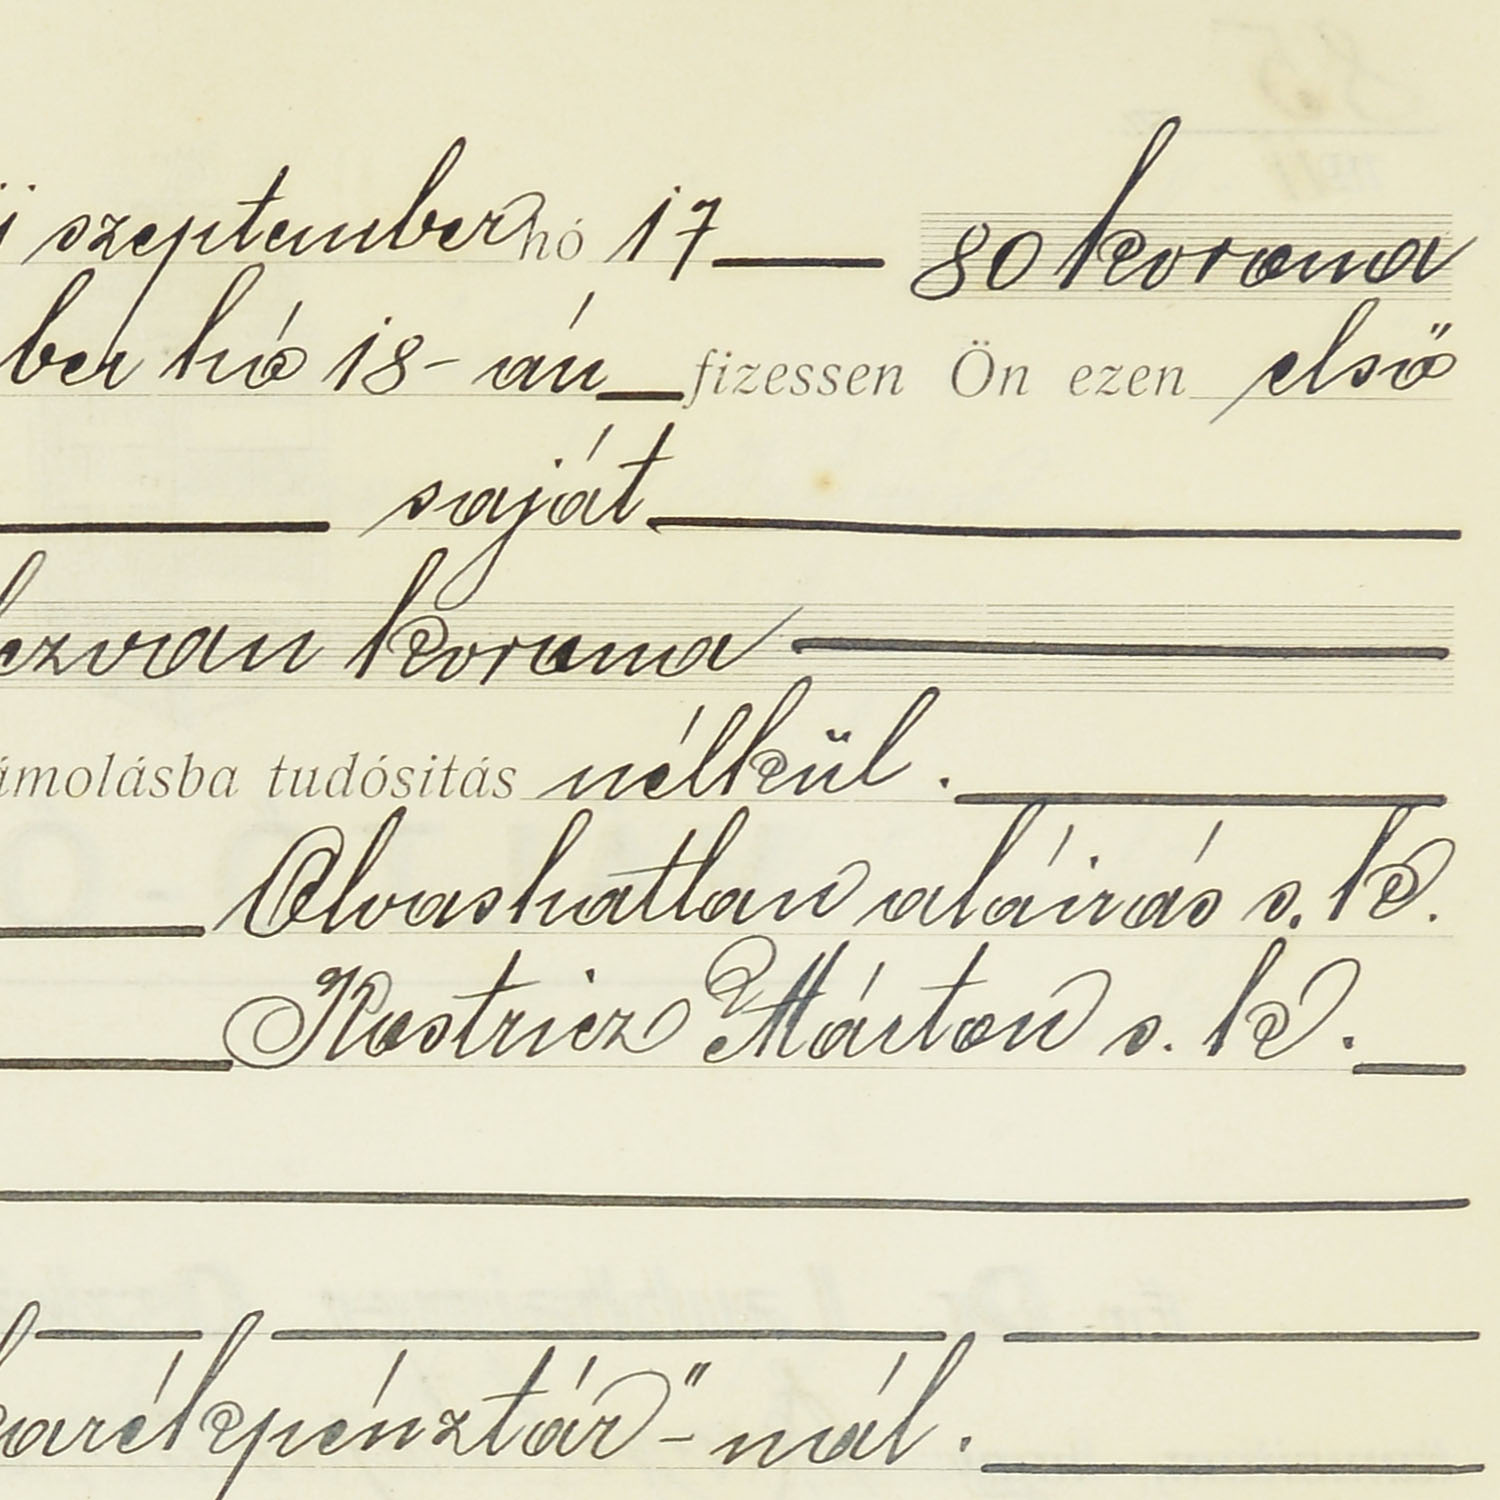 szeptember hó 17 80 korona
ber hó 18-án fizessen Ön ezen első
saját
ezvan korona
ámolásba tudósitás nélkül.
Olvashatlan aláirás s. k.
Kostricz Márton s. k.
karékpénztár"-nál.